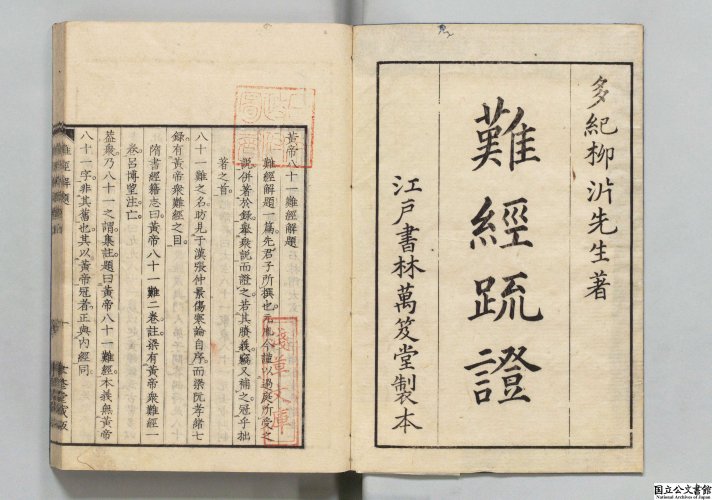 多紀柳沜先生著
難經疏證
江戸書林萬笈堂製本
黃帝八十一難經解題
難經解題一篇先君子所撰也元胤今謹以過庭所受之
說併著於錄舉衆說而證之若其賸義竊又補之冠乎拙
著之首
八十一難之名昉見于漢張仲景傷寒論自序而梁阮孝緒七
錄有黃帝衆難經之目
隋書經籍志曰黃帝八十一難二卷註梁有黃帝衆難經一
卷呂博望注亡
蓋衆乃八十一之謂集註題曰黃帝八十一難經本義無黃帝
八十一字非其舊也其以黃帝冠者正與內經同
難經解題
國立公文書館
National Archives of Japan